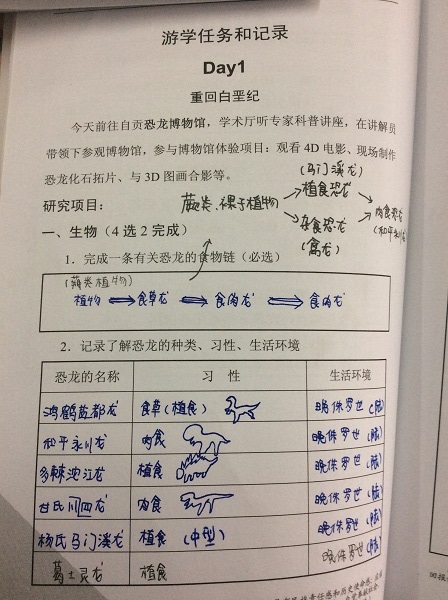 游学任务和记录
Day1
重回白垩纪
今天前往自贡恐龙博物馆，学术厅听专家科普讲座，在讲解员
带领下参观博物馆，参与博物馆体验项目：观看 4D 电影、现场制作
恐龙化石拓片、与 3D 图画合影等。
(马门溪龙)
研究项目：
蕨类、裸子植物
植食恐龙
肉食恐龙
杂食恐龙
(和平永川龙)
一、生物（4 选 2 完成）
1．完成一条有关恐龙的食物链（必选）
(蕨类植物)
植物 食草龙 食肉龙 食肉龙
2．记录了解恐龙的种类、习性、生活环境
恐龙的名称 习 性 生活环境
鸿鹤盐都龙 食草(植食) 晚侏罗世(陆)
和平永川龙 肉食 晚侏罗世(陆)
多棘沱江龙 植食 晚侏罗世(陆)
甘氏四川龙 肉食 晚侏罗世(陆)
杨氏马门溪龙 植食 (中型) 晚侏罗世(陆)
葛氏灵龙 植食 晚侏罗世(陆)